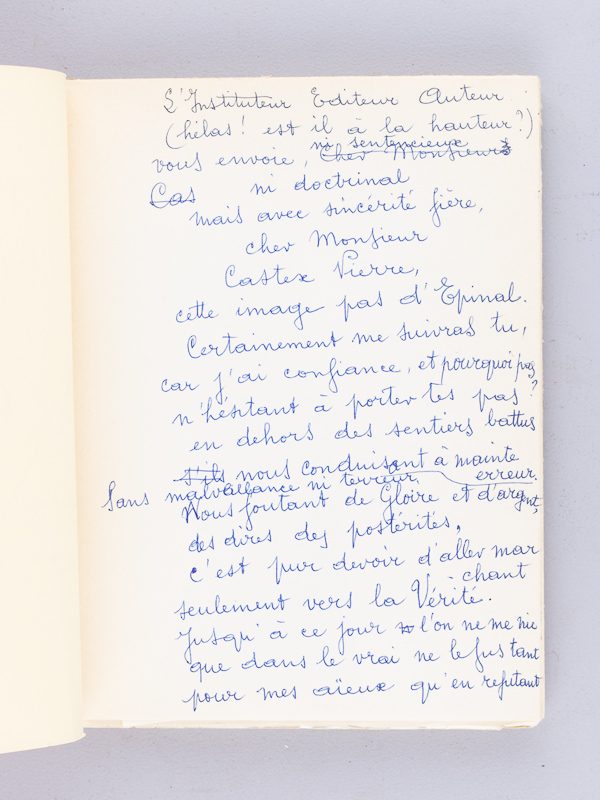 L'Instituteur Editeur Auteur
(hélas! est il à la hauteur?)
ni sentencieux
vous envoie, Cher Monsieur
Cas ni doctrinal
mais avec sincérité fière,
cher Monsieur
Castex Pierre,
cette image pas d'Epinal.
Certainement me suivras tu,
car j'ai confiance, et pourquoi pas
n'hésitant à porter tes pas?
en dehors des sentiers battus
s'ils nous conduisent à mainte
erreur.
Sans malveillance ni terreur,
Nous foutant de Gloire et d'argent,
des dires des postérités,
c'est pur devoir d'aller mar
chant
seulement vers la Vérité.
Jusqu'à ce jour l'on ne me nie
que dans le vrai ne le fus tant
pour mes aïeux qu'en refutant